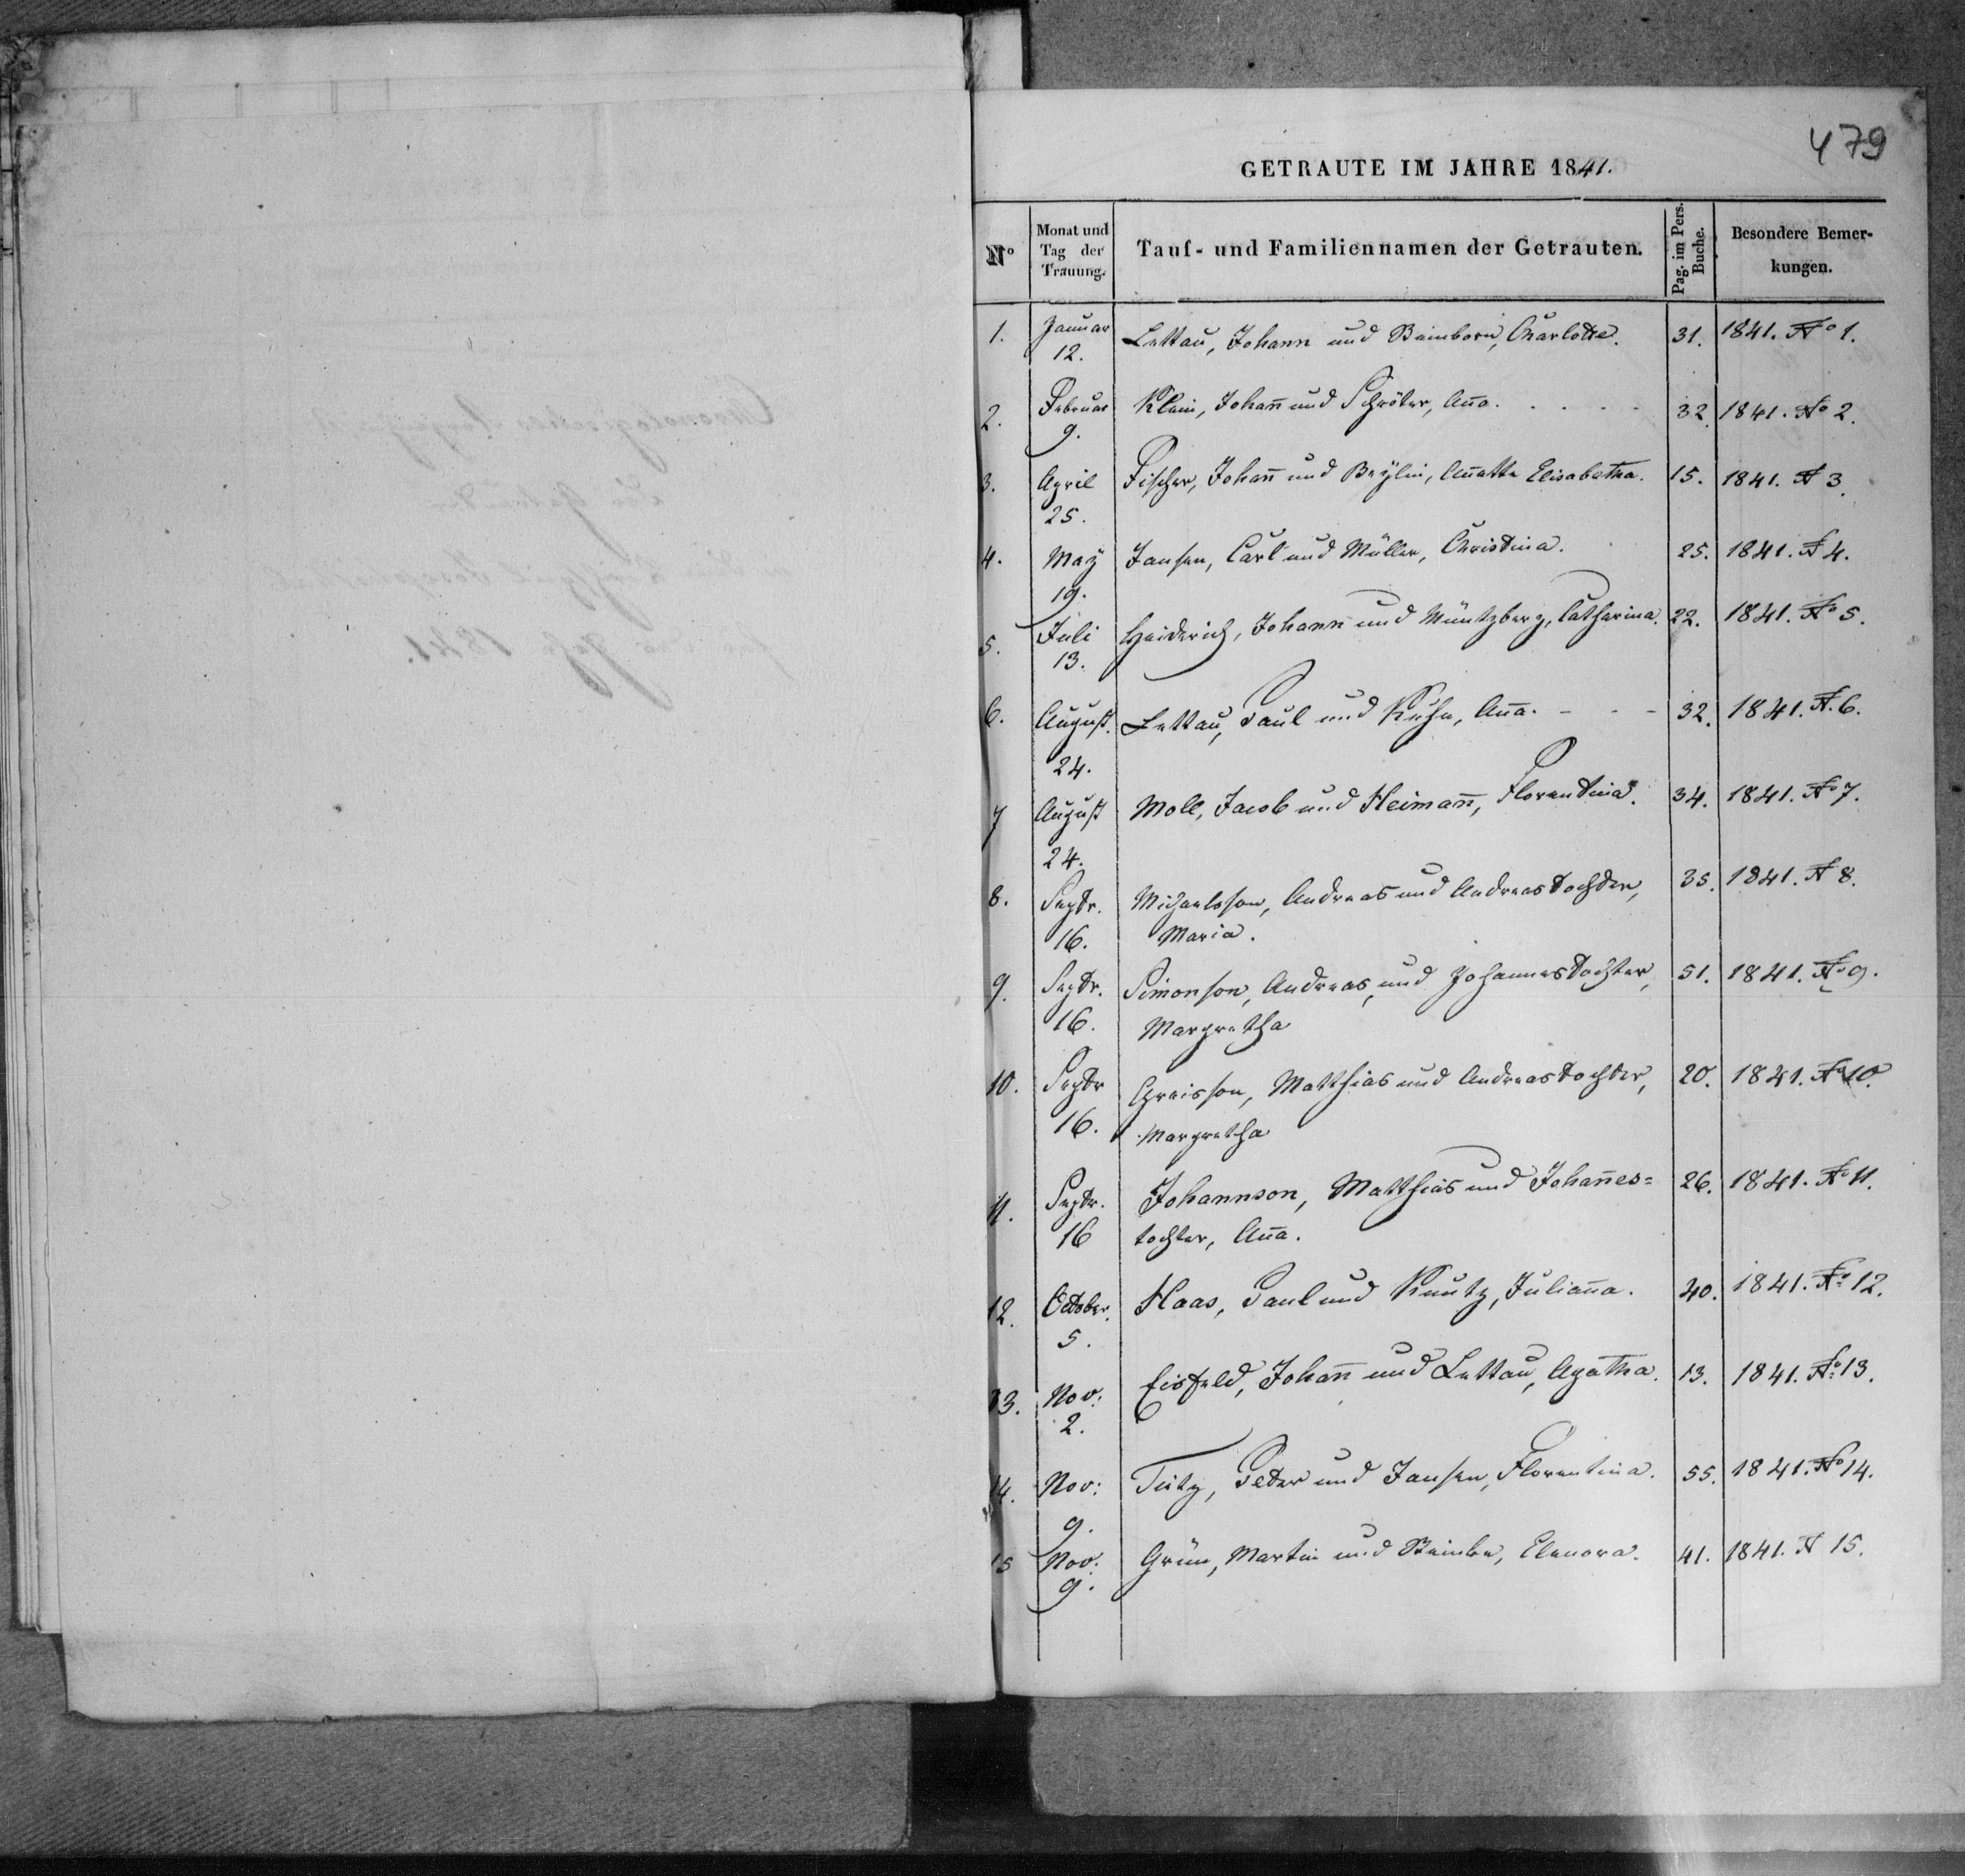 479
GETRAUTE IM JAHRE 1841.
No Monat und Tag der Trauung. Tauf- und Familiennamen der Getrauten. Pag. im Pers. Buche. Besondere Bemer-kungen.
1. Januar Lettau, Johann und Beinborn, Charlotte. 31. 1841. No 1.
12.
2. Februar Klein, Johann und Schröter, Anna. 32. 1841. No 2.
9.
3. April Fischer, Johann und Beylin, Annette Elisabetha. 15. 1841. N 3.
25.
4. May Jansen, Carl und Müller, Christina. 25. 1841. N 4.
19.
5. Juli Heiderich, Johann und Müntzberg, Catharina. 22. 1841. No 5.
13.
6. August. Lettau, Paul und Kuhn, Anna. - - - 32. 1841. N. 6.
24.
7 August Moll, Jacob und Heimann, Florentina. 34. 1841. No 7.
24.
8. Septr. Michaelsson, Andreas und Andreastochter, 35. 1841. N 8.
16. Maria.
9. Septr. Simonson, Andreas, und Johannestochter, 51. 1841. No 9.
16. Margretha
10. Septr Greisson, Matthias und Andreastochter, 20. 1841. No 10.
16. Margretha
11. Septr. Johannson, Matthias und Johannes= 26. 1841. No 11.
16 tochter, Anna.
12. October. Haas, Paul und Kuntz, Julianna. 40. 1841. No 12.
5.
13. Nov: Eisfeld, Johann und Lettau, Agatha. 13. 1841. No 13.
2.
14. Nov: Peter und Jansen, Florentina. 55. 1841. No 14.
9.
15 Nov: Grün, Martin und Eleonora. 41. 1841. N 15.
9.